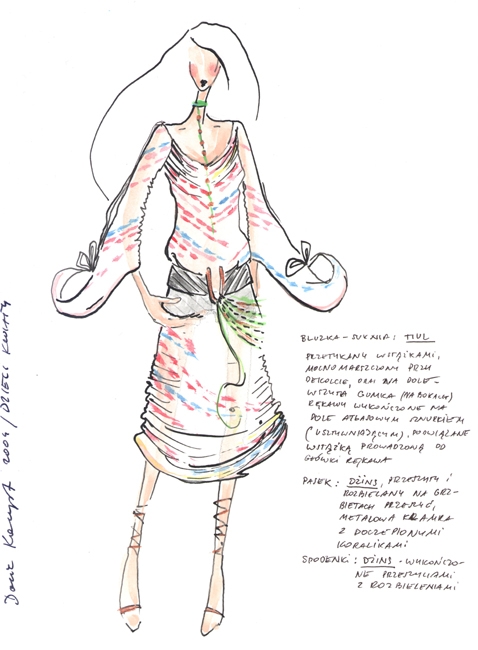 BLUZKA-SUKNIA: TIUL
PRZETYKANY WSTĄŻKAMI,
MOCNO MARSZCZONY PRZY
DEKOLCIE, ORAZ NA DOLE-
WSZYTA GUMKA (NA BOKACH)
RĘKAWY WYKOŃCZONE NA
DOLE ATŁASOWYM SZNURKIEM
(USZTYWNIAJĄCYM), POWIĄZANE
WSTĄŻKĄ PROWADZONĄ OD
GŁÓWKI RĘKAWA
PASEK: DŻINS, PRZESZYTY I
ROZBIELANY NA GRZ-
BIETACH PRZESZYĆ,
METALOWA KLAMRA
Z DOCZEPIONYMI
KORALIKAMI
SPODENKI: DŻINS - WYKOŃCZO-
NE PRZESZYCIAMI
Z ROZBIELENIAMI
2004 / DZIECI KWIATY